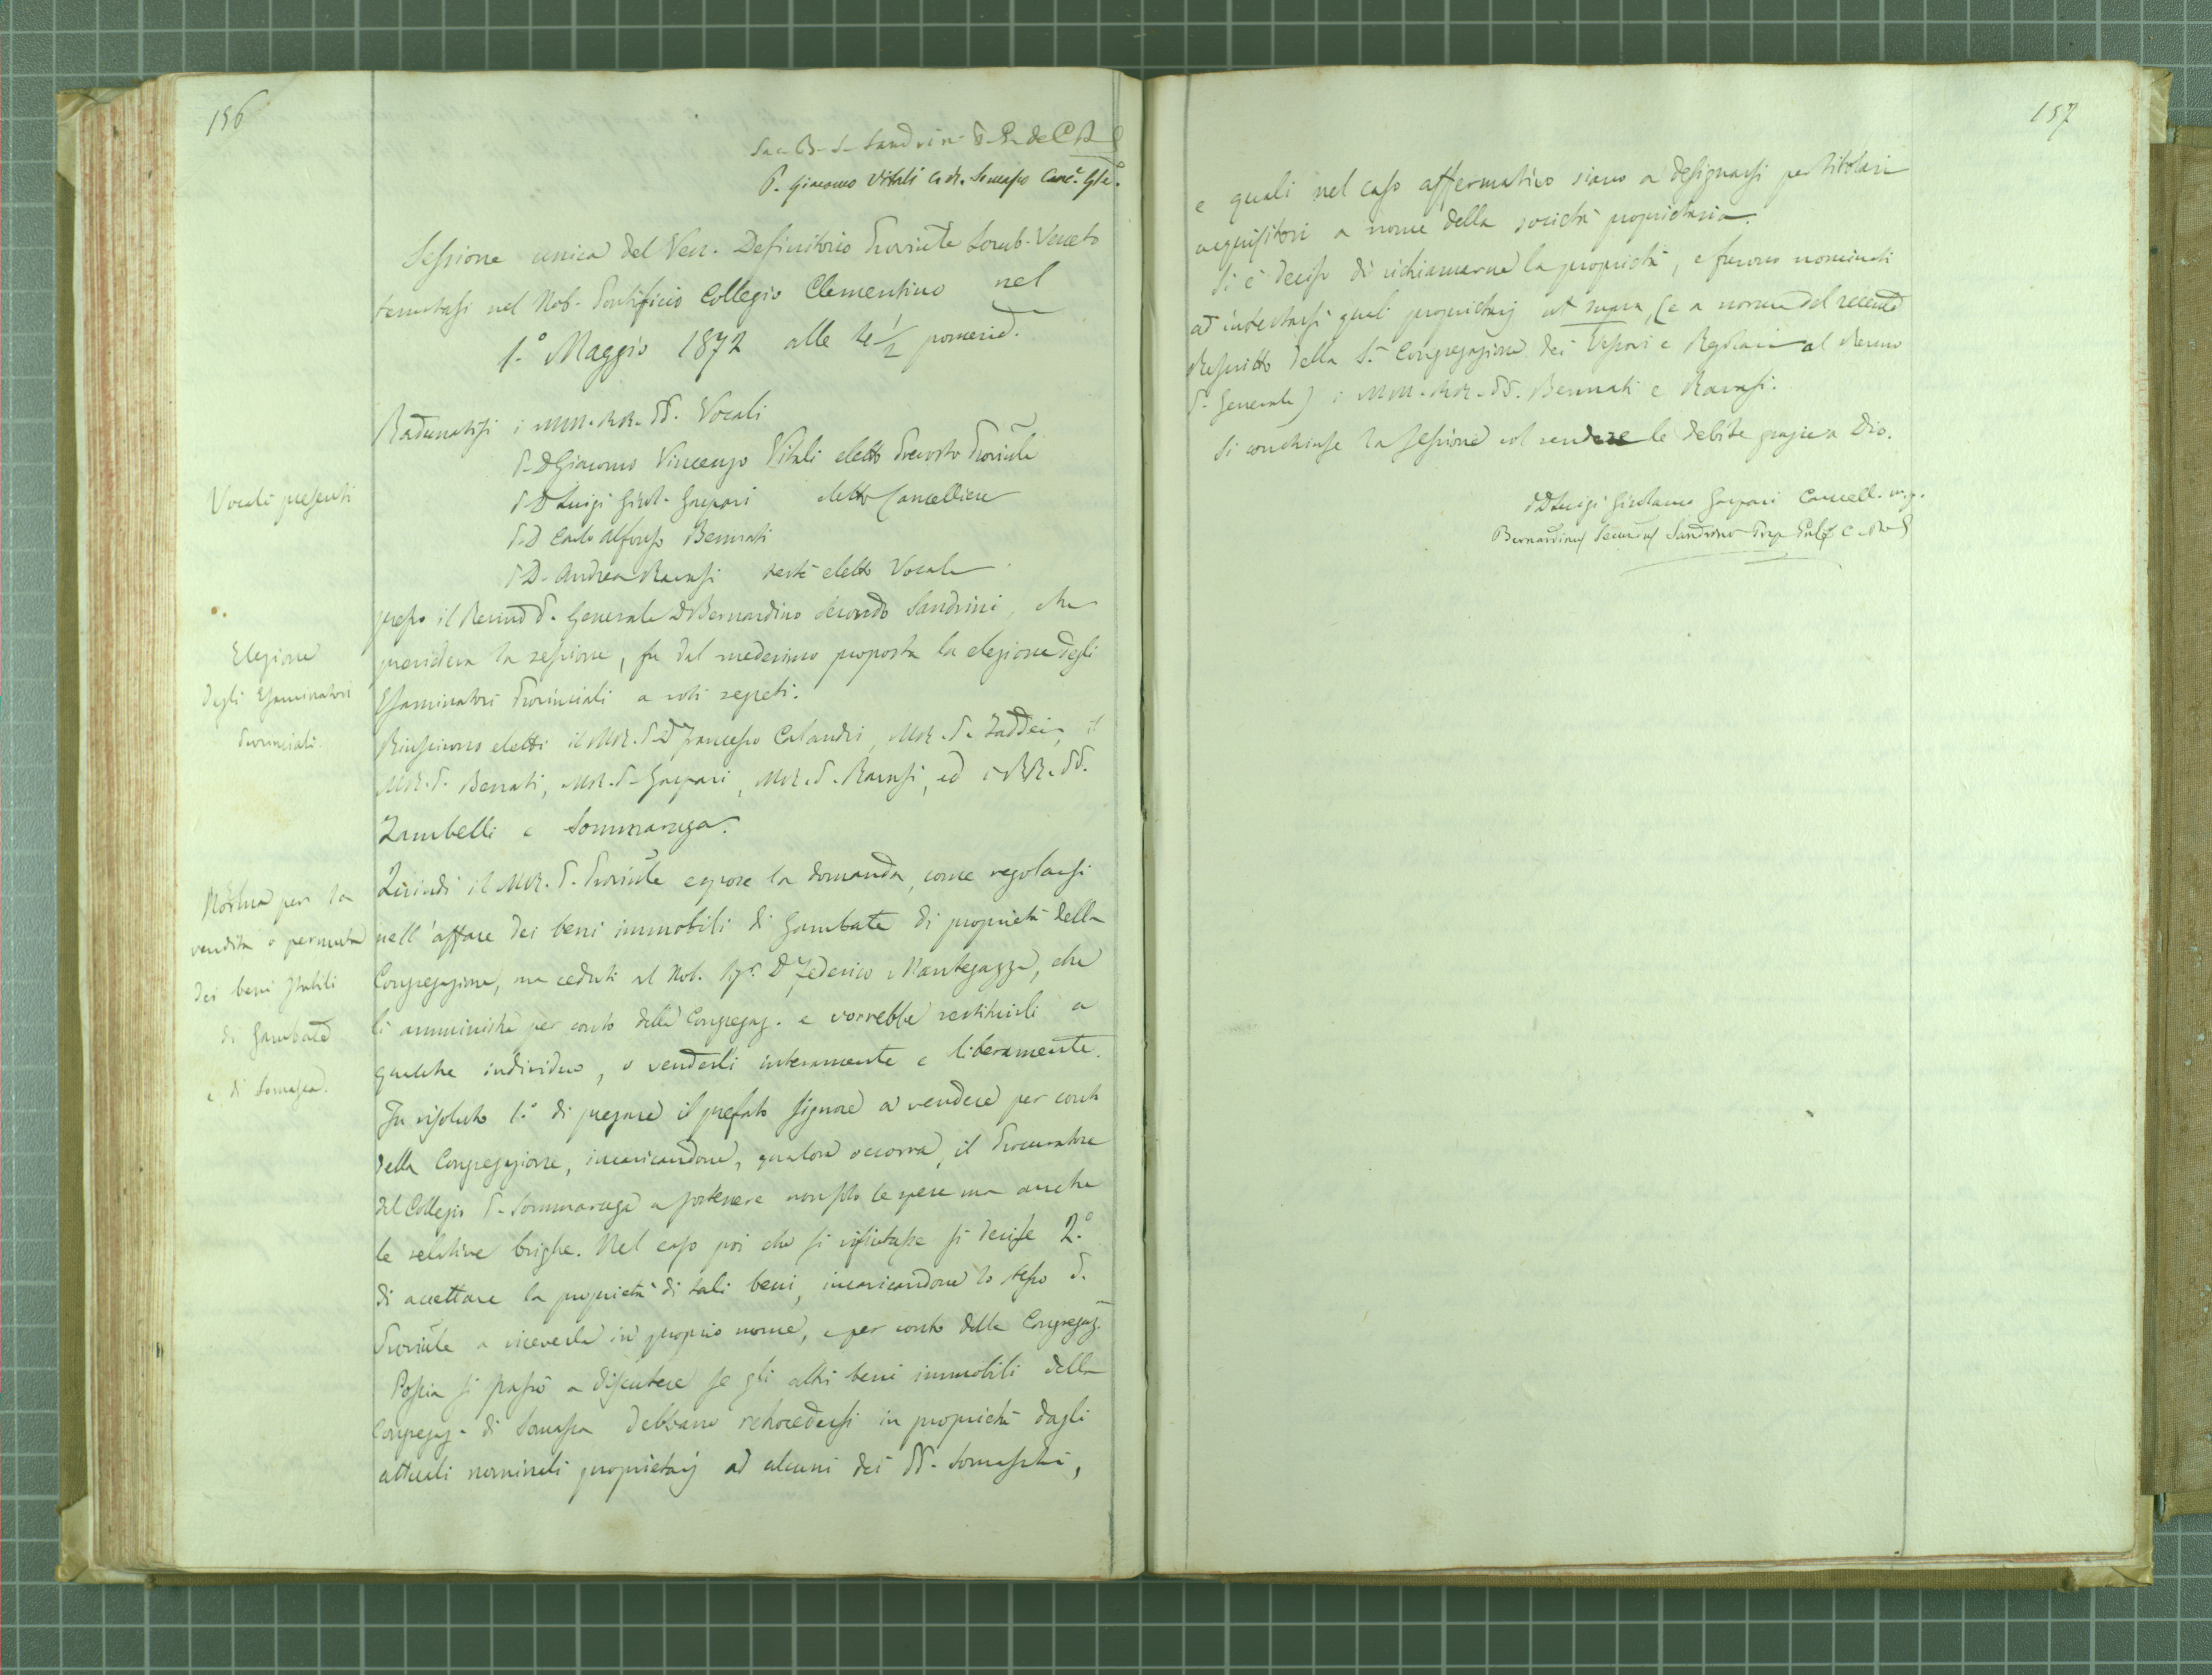 156
Sac. B. S. Sandrini P. G. de C. R. S.
P. Giacomo Vitali C. R. Somasco Canc.e Gle.
Sessione unica del Ven. Definitorio Provinle Lomb. Veneto
tenutasi nel Nob. Pontificio Collegio Clementino nel
1.° Maggio 1872 alle 4 1/2 pomerid.
Radunatisi i MM. RR. PP. Vocali
Vocali presenti
P. D Giacomo Vincenzo Vitali eletto Prevosto Provinle
P. D Luigi Girol. Gaspari eletto Cancelliere
P. D Carlo Alfonso Bennati
P. D. Andrea Ravasi testè eletto Vocale
presso il Revmo P. Generale D Bernardino Secondo Sandrini, che
Elezione
degli Esaminatori
Provinciali.
presiedeva la sessione, fu dal medesimo proposta la elezione degli
Esaminatori Provinciali a voti segreti.
Riuscirono eletti il MR. P. D Francesco Calandri, MR. P. Taddei, il
MR. P. Bennati, MR. P. Gaspari, MR. P. Ravasi, ed i RR. PP.
Zambelli e Sommaruga.
Norma per la
vendita o permuta
dei beni stabili
di Gambate
e di Somasca.
Quindi il MR. P. Provinle espose la domanda, come regolarsi
nell'affare dei beni immobili di Gambate di proprietà della
Congregazione, ma ceduti al Nob. Sigr. D Federico Mantegazza, che
li amministra per conto della Congregaz. e vorrebbe restituirli a
qualche individuo, o venderli interamente e liberamente.
Fu risoluto 1.° di pregare il prefato signore a vendere per conto
della Congregazione, incaricandone, qualora occorra, il Procuratore
del Collegio P. Sommaruga a sostenere non solo le spese ma anche
le relative brighe. Nel caso poi che si rifiutasse si decise 2.°
di accettare la proprietà di tali beni, incaricandone lo stesso P.
Provinle a riceverla in proprio nome, e per conto della Congregaz.
Poscia si passò a discutere se gli altri beni immobili della
Congregaz. di Somasca debbano retrocedersi in proprietà dagli
attuali nominali proprietarj ad alcuni dei PP. Somaschi,
157
e quali nel caso affermativo siano a designarsi per titolari
acquisitori a nome della società proprietaria.
Si è deciso di richiamarne la proprietà, e furono nominati
ad intestarsi quali proprietarj ut supra, (e a norma del recente
Rescritto della S. Congregazione dei Vescovi e Regolari al Revmo
P. Generale) i MM. RR. PP. Bennati e Ravasi.
Si conchiuse la sessione col rendere le debite grazie a Dio.
P D Luigi Girolamo Gaspari Cancell. m. p.
Bernardinus Secundus Sandrini Prep. Gnlis C. R. S.